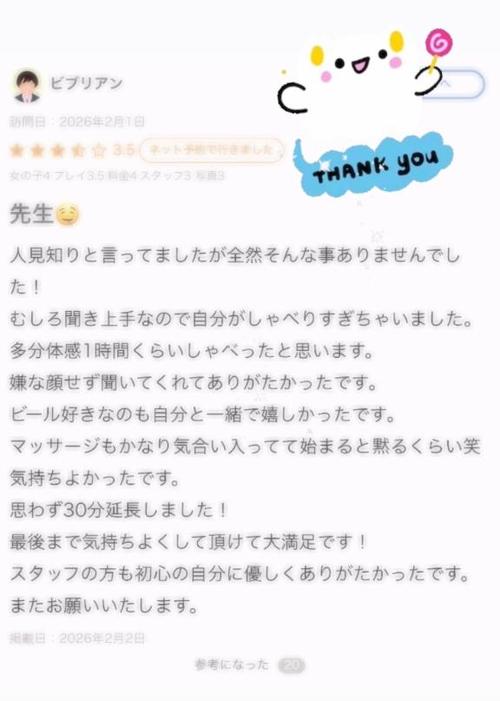 ビブリアン
訪問日：2026年2月1日
THANK YOU
3.5 ネット予約で行きました
女の子4 プレイ3.5 料金4 スタッフ3 写真3
先生
人見知りと言ってましたが全然そんな事ありませんでし
た！
むしろ聞き上手なので自分がしゃべりすぎちゃいました。
多分体感1時間くらいしゃべったと思います。
嫌な顔せず聞いてくれてありがたかったです。
ビール好きなのも自分と一緒で嬉しかったです。
マッサージもかなり気合い入ってて始まると黙るくらい笑
気持ちよかったです。
思わず30分延長しました！
最後まで気持ちよくして頂けて大満足です！
スタッフの方も初心の自分に優しくありがたかったです。
またお願いいたします。
掲載日：2026年2月2日
参考になった 20